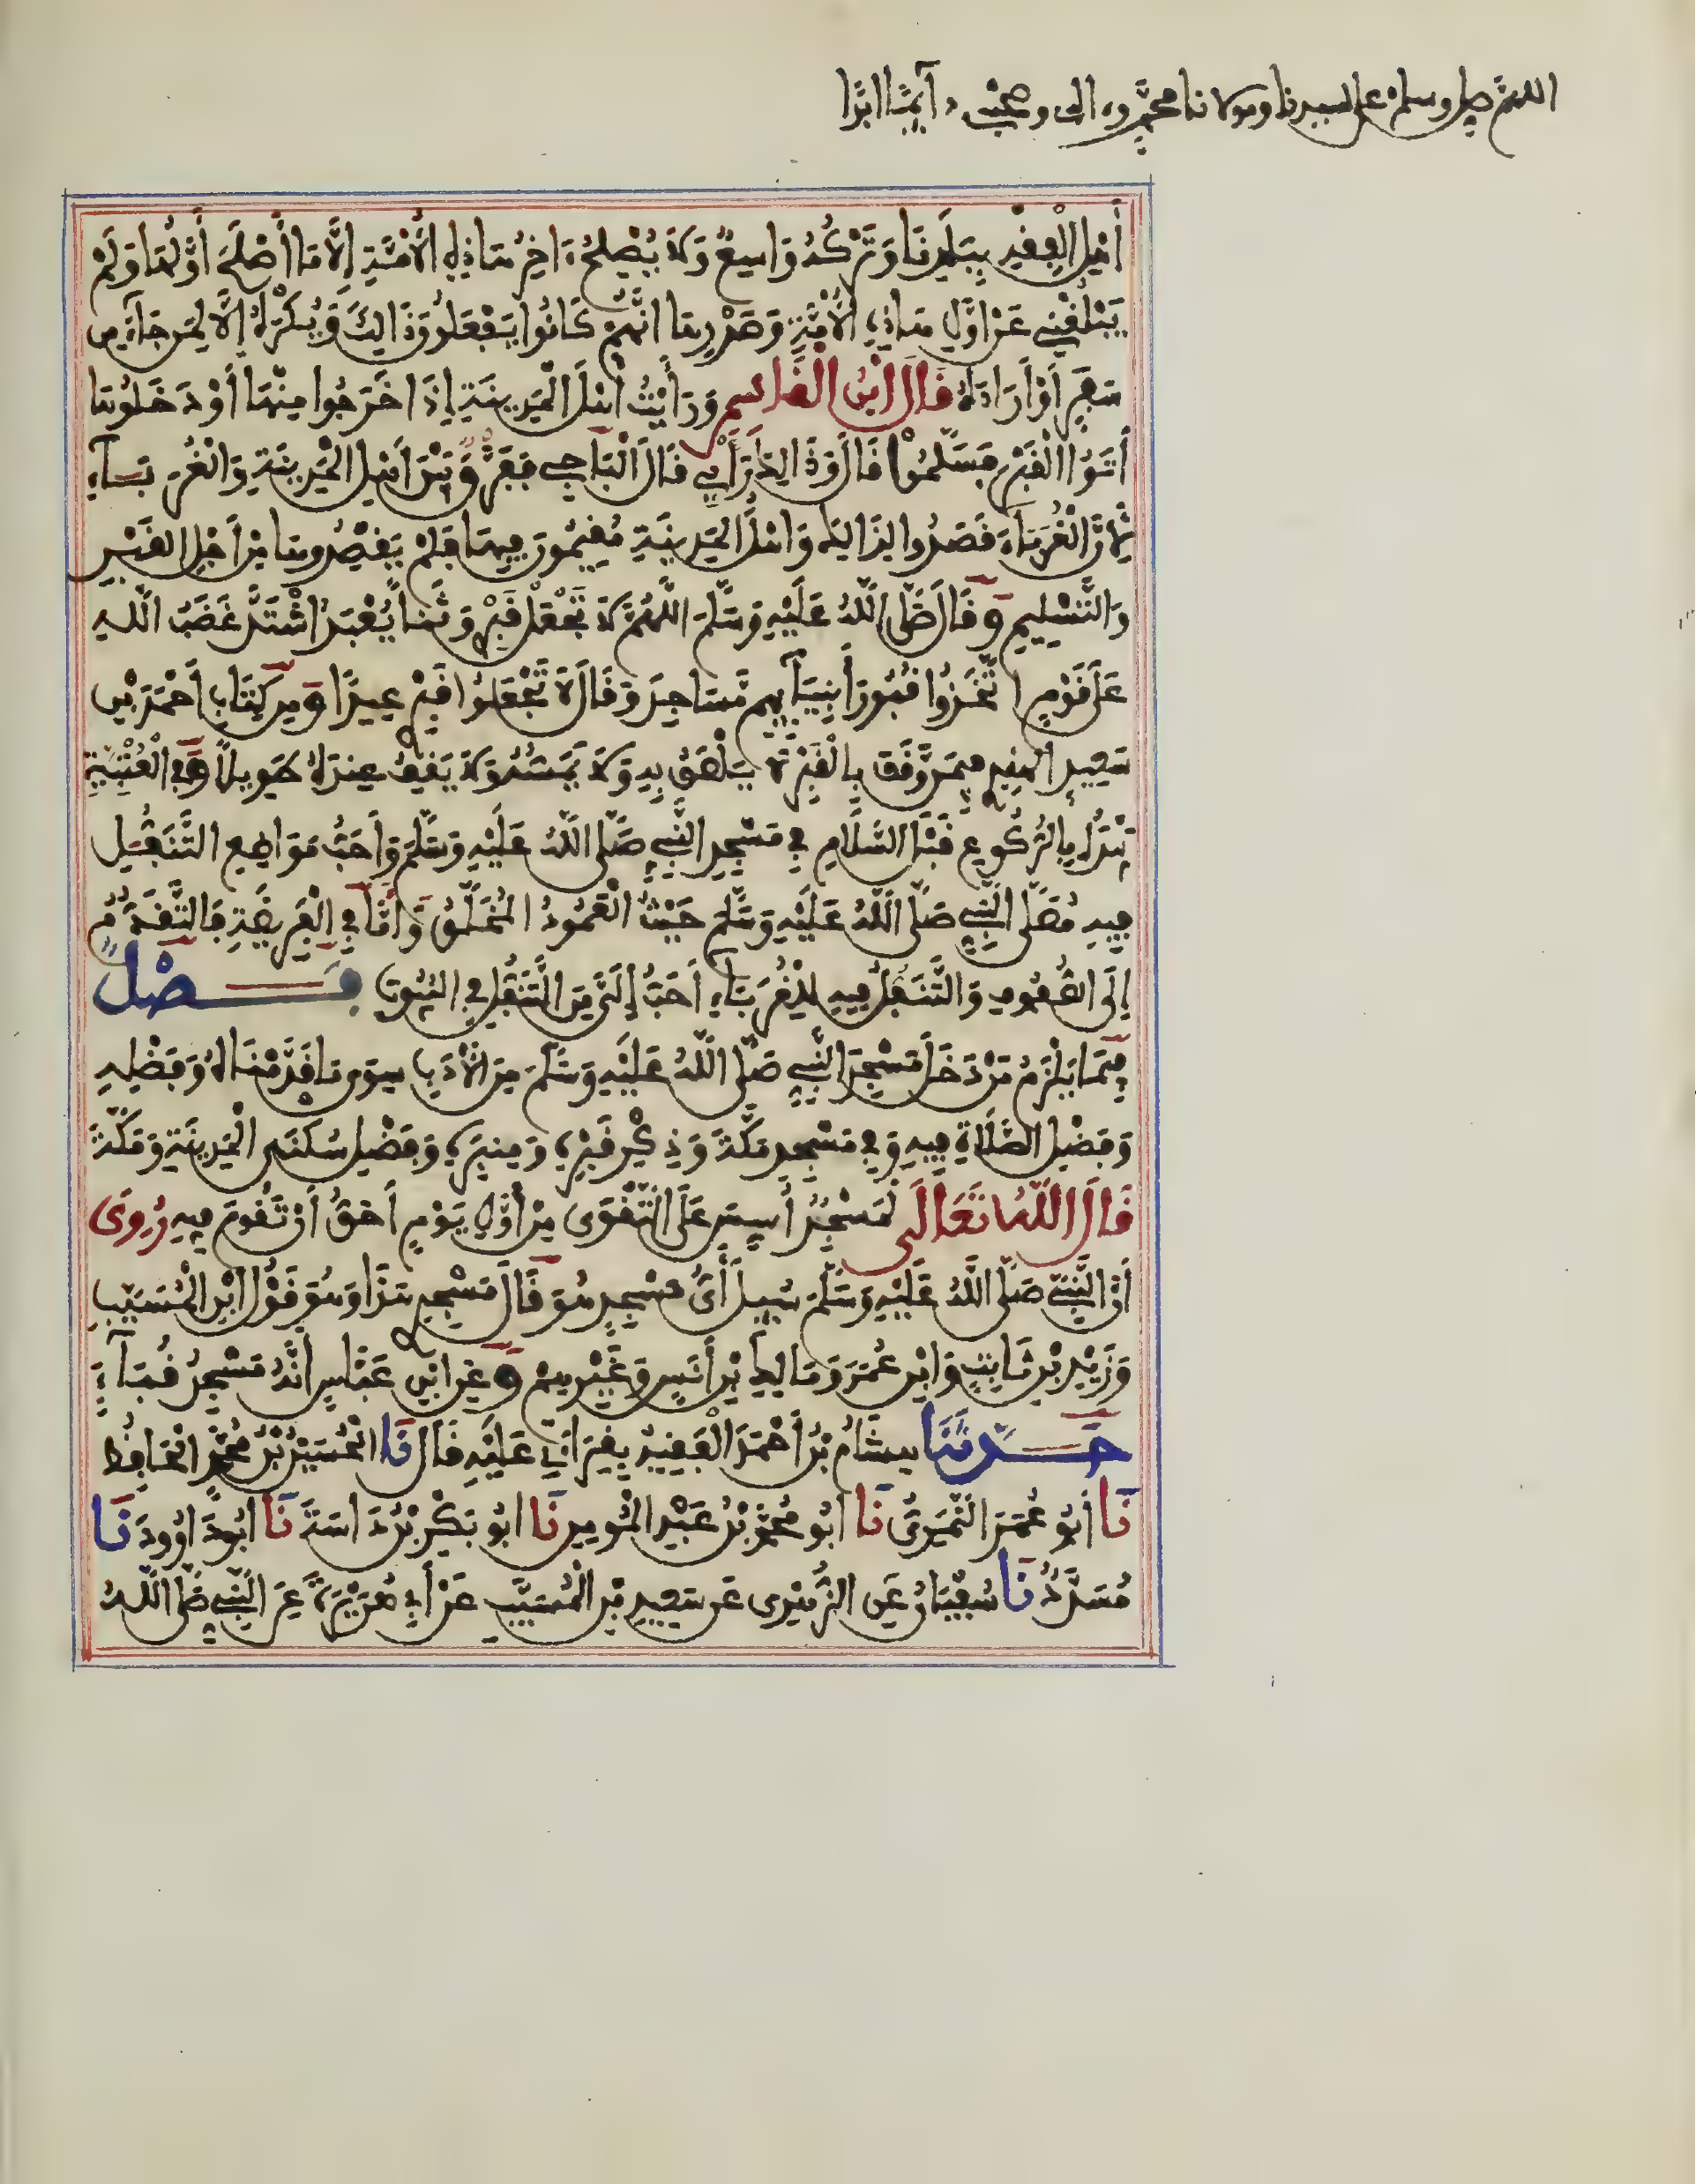 اللهم صل وسلم على سيدنا ومولانا محمد وءاله وصحبه ءامينا ابدا
أَهْلِ الْفِقْهِ بِبَلَدِنَا وَتَرْكُهُ وَاسِعٌ وَلَا يُصْلِحُ ءَاخِرَ هَاذِهِ الْأُمَّةِ إِلَّا مَا أَصْلَحَ أَوَّلَهَا وَلَمْ
يَبْلُغْنِي عَنْ أَوَّلِ هَاذِهِ الْأُمَّةِ وَصَدْرِهَا أَنَّهُمْ كَانُوا يَفْعَلُونَ ذَالِكَ وَيُكْرَهُ إِلَّا لِمَنْ جَاءَ مِن
سَفَرٍ أَوْ أَرَادَهُ قَالَ ابْنُ الْقَاسِمِ وَرَأَيْتُ أَهْلَ الْمَدِينَةِ إِذَا خَرَجُوا مِنْهَا أَوْ دَخَلُوهَا
أَتَوُا الْقَبْرَ فَسَلَّمُوا قَالَ وَذَالِكَ رَأْيِي قَالَ الْبَاجِي فَفَرْقٌ بَيْنَ أَهْلِ الْمَدِينَةِ وَالْغُرَبَاءِ
لِأَنَّ الْغُرَبَاءَ قَصَدُوا لِذَالِكَ وَأَهْلُ الْمَدِينَةِ مُقِيمُونَ بِهَا فَلَمْ يَقْصِدُوهَا مِنْ أَجْلِ الْقَبْرِ
وَالتَّسْلِيمِ وَقَالَ صَلَّى اللَّهُ عَلَيْهِ وَسَلَّمَ اللَّهُمَّ لَا تَجْعَلْ قَبْرِي وَثَناً يُعْبَدُ اشْتَدَّ غَضَبُ اللَّهِ
عَلَى قَوْمٍ اتَّخَذُوا قُبُورَ أَنْبِيَائِهِم مَّسَاجِدَ وَقَالَ لَا تَجْعَلُوا قَبْرِي عِيداً وَمِن كِتَابِ أَحْمَدَ بْنِ
سَعِيدٍ الْهِنْدِيِّ فِيمَن وَّقَفَ بِالْقَبْرِ لَا يَلْصَقُ بِهِ وَلَا يَمَسُّهُ وَلَا يَقِفُ عِندَهُ طَوِيلاً وَفِي الْعُتْبِيَّةِ
يَبْدَأُ بِالرُّكُوعِ قَبْلَ السَّلَامِ فِي مَسْجِدِ النَّبِيِّ صَلَّى اللَّهُ عَلَيْهِ وَسَلَّمَ وَأَحَبُّ مَوَاضِعِ التَّنَفُّلِ
فِيهِ مُصَلَّى النَّبِيِّ صَلَّى اللَّهُ عَلَيْهِ وَسَلَّمَ حَيْثُ الْعَمُودُ الْمُخَلَّقُ وَأَمَّا فِي الْفَرِيضَةِ فَالتَّقَدُّمُ
إِلَى الصُّفُوفِ وَالتَّنَفُّلُ فِيهِ لِلْغُرَبَاءِ أَحَبُّ إِلَيَّ مِنَ التَّنَفُّلِ فِي الْبُيُوتِ فَصْلٌ
فِيمَا يَلْزَمُ مَنْ دَخَلَ مَسْجِدَ النَّبِيِّ صَلَّى اللَّهُ عَلَيْهِ وَسَلَّمَ مِنَ الْأَدَبِ سِوَى مَا قَدَّمْنَاهُ وَفَضْلِهِ
وَفَضْلِ الصَّلَاةِ فِيهِ وَفِي مَسْجِدِ مَكَّةَ وَذِكْرِ قَبْرِهِ وَمِنبَرِهِ وَفَضْلِ سُكْنَى الْمَدِينَةِ وَمَكَّةَ
قَالَ اللَّهُ تَعَالَى لَمَسْجِدٌ أُسِّسَ عَلَى التَّقْوَى مِنْ أَوَّلِ يَوْمٍ أَحَقُّ أَن تَقُومَ فِيهِ رُوِىَ
أَنَّ النَّبِيَّ صَلَّى اللَّهُ عَلَيْهِ وَسَلَّمَ سُئِلَ أَيُّ مَسْجِدٍ هُوَ قَالَ مَسْجِدِي هَذَا وَهُوَ قَوْلُ ابْنِ الْمُسَيِّبِ
وَزَيْدِ بْنِ ثَابِتٍ وَابْنِ عُمَرَ وَمَالِكِ بْنِ أَنَسٍ وَغَيْرِهِمْ وَعَنِ ابْنِ عَبَّاسٍ أَنَّهُ مَسْجِدُ قُبَاءٍ
حَدَّثَنَا هِشَامُ بْنُ أَحْمَدَ الْفَقِيهُ بِقِرَاءَتِي عَلَيْهِ قَالَ نَا الْحُسَيْنُ بْنُ مُحَمَّدٍ الْحَافِظُ
نَا أَبُو عُمَرَ النَّمَرِيُّ نَا أَبُو مُحَمَّدِ بْنُ عَبْدِ الْمُومِنِ نَا أَبُو بَكْرِ بْنُ دَاسَةَ نَا أَبُو دَاوُودَ نَا
مُسَدَّدٌ نَا سُفْيَانُ عَنِ الزُّهْرِي عَن سَعِيدِ بْنِ الْمُسَيَّبِ عَنْ أَبِي هُرَيْرَةَ عَنِ النَّبِيِّ صَلَّى اللَّهُ